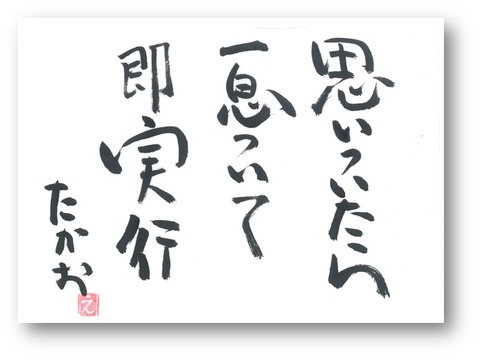 思いついたら
一息ついて
即実行
たかお